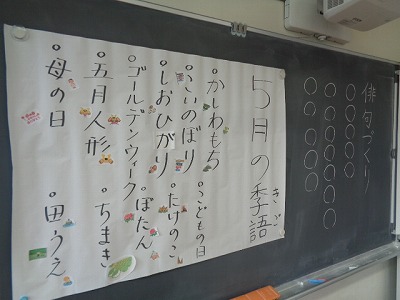 俳句づくり
5月の季語
きご
・かしわもち ・こどもの日
・こいのぼり ・たけのこ
・しおひがり ・ぼたん
・ゴールデンウィーク
・五月人形 ・ちまき
・母の日 ・田うえ